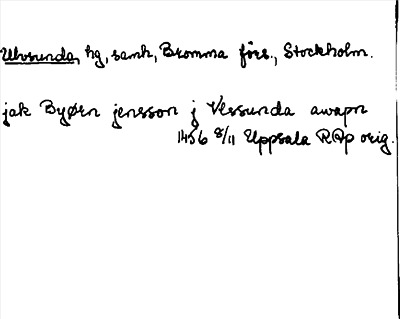 Ulvsunda, hg, samh, Bromma förs., Stockholm.
jak Byørn jensson j Vlssunda awapn
1456 8/11 Uppsala RAp orig.